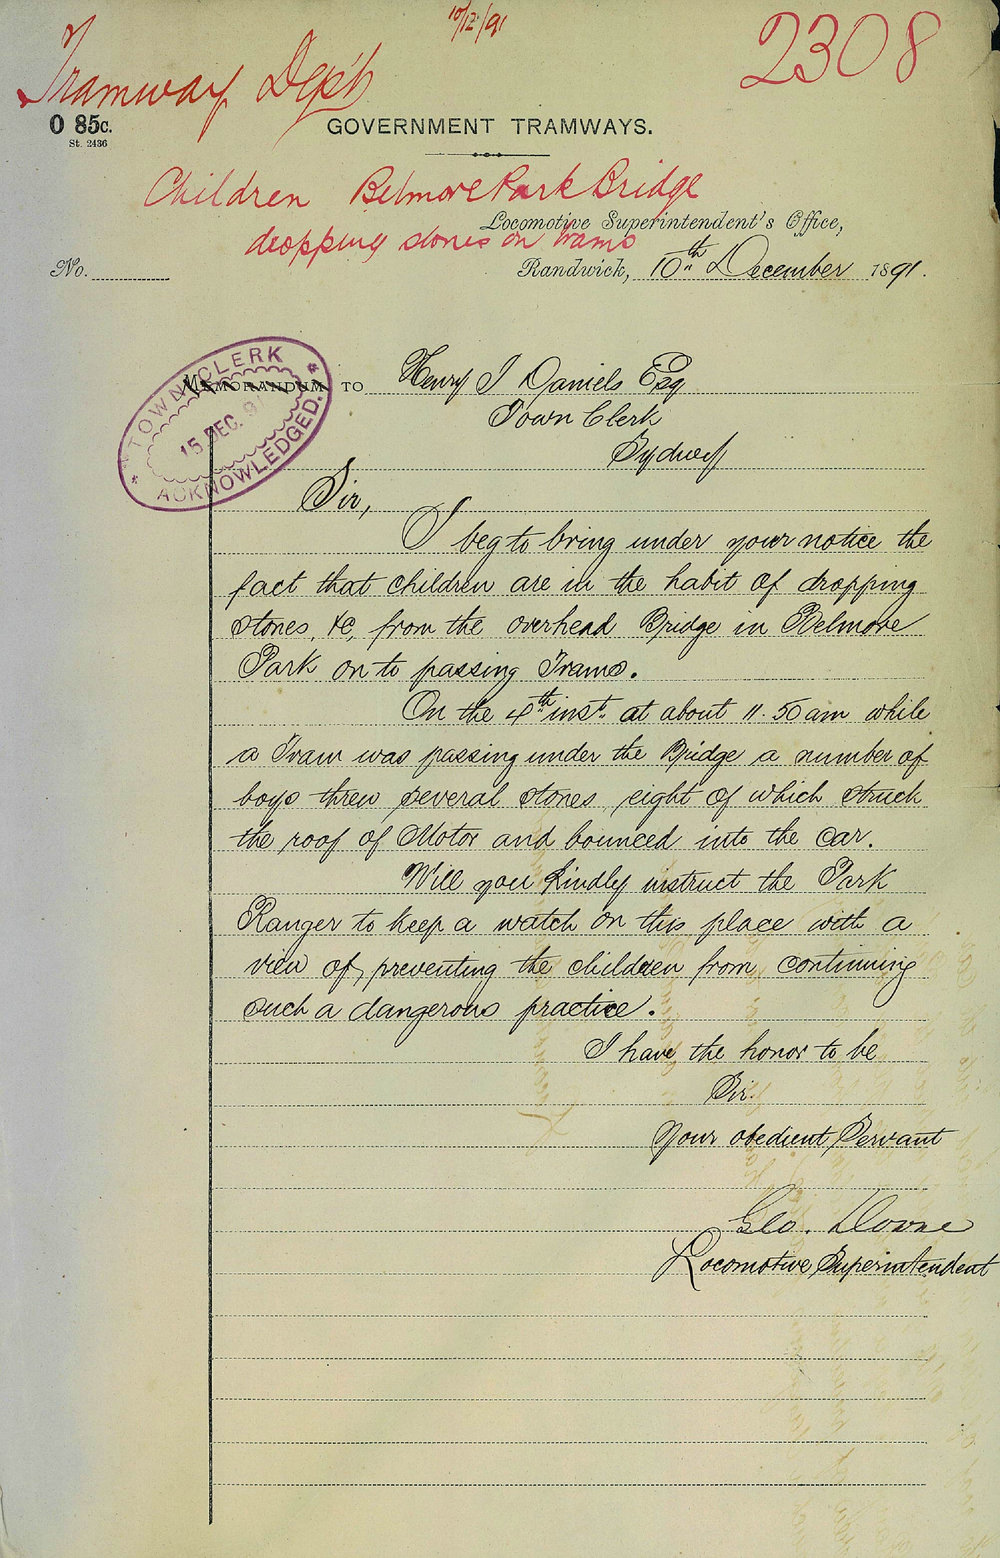 10/12/91
2308
Tramway Dept
O 85c.
St. 2436
GOVERNMENT TRAMWAYS.
Children Belmore Park Bridge
dropping stones on trams
Locomotive Superintendent's Office,
No.
Randwick, 10th December 1891.
TOWN CLERK
15 DEC. 91
ACKNOWLEDGED.
MEMORANDUM TO Henry J Daniels Esq
Town Clerk
Sydney
Sir,
I beg to bring under your notice the
fact that children are in the habit of dropping
stones, &c, from the overhead Bridge in Belmore
Park on to passing Trams.
On the 4th inst. at about 11.50 am while
a Tram was passing under the Bridge a number of
boys threw several stones, eight of which struck
the roof of Motor and bounced into the car.
Will you kindly instruct the Park
Ranger to keep a watch on this place with a
view of preventing the children from continuing
such a dangerous practice.
I have the honor to be
Sir.
Your obedient Servant
Geo. Downe
Locomotive Superintendent